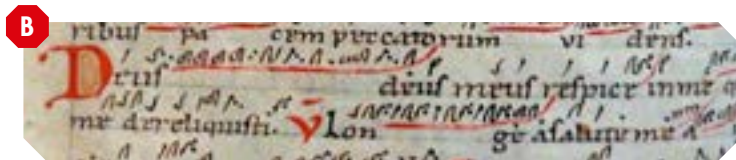 B
ribus pa cem peccatorum vi dens.
Deus deus meus respice in me q
me dereliquisti. V Lon ge a salute me a